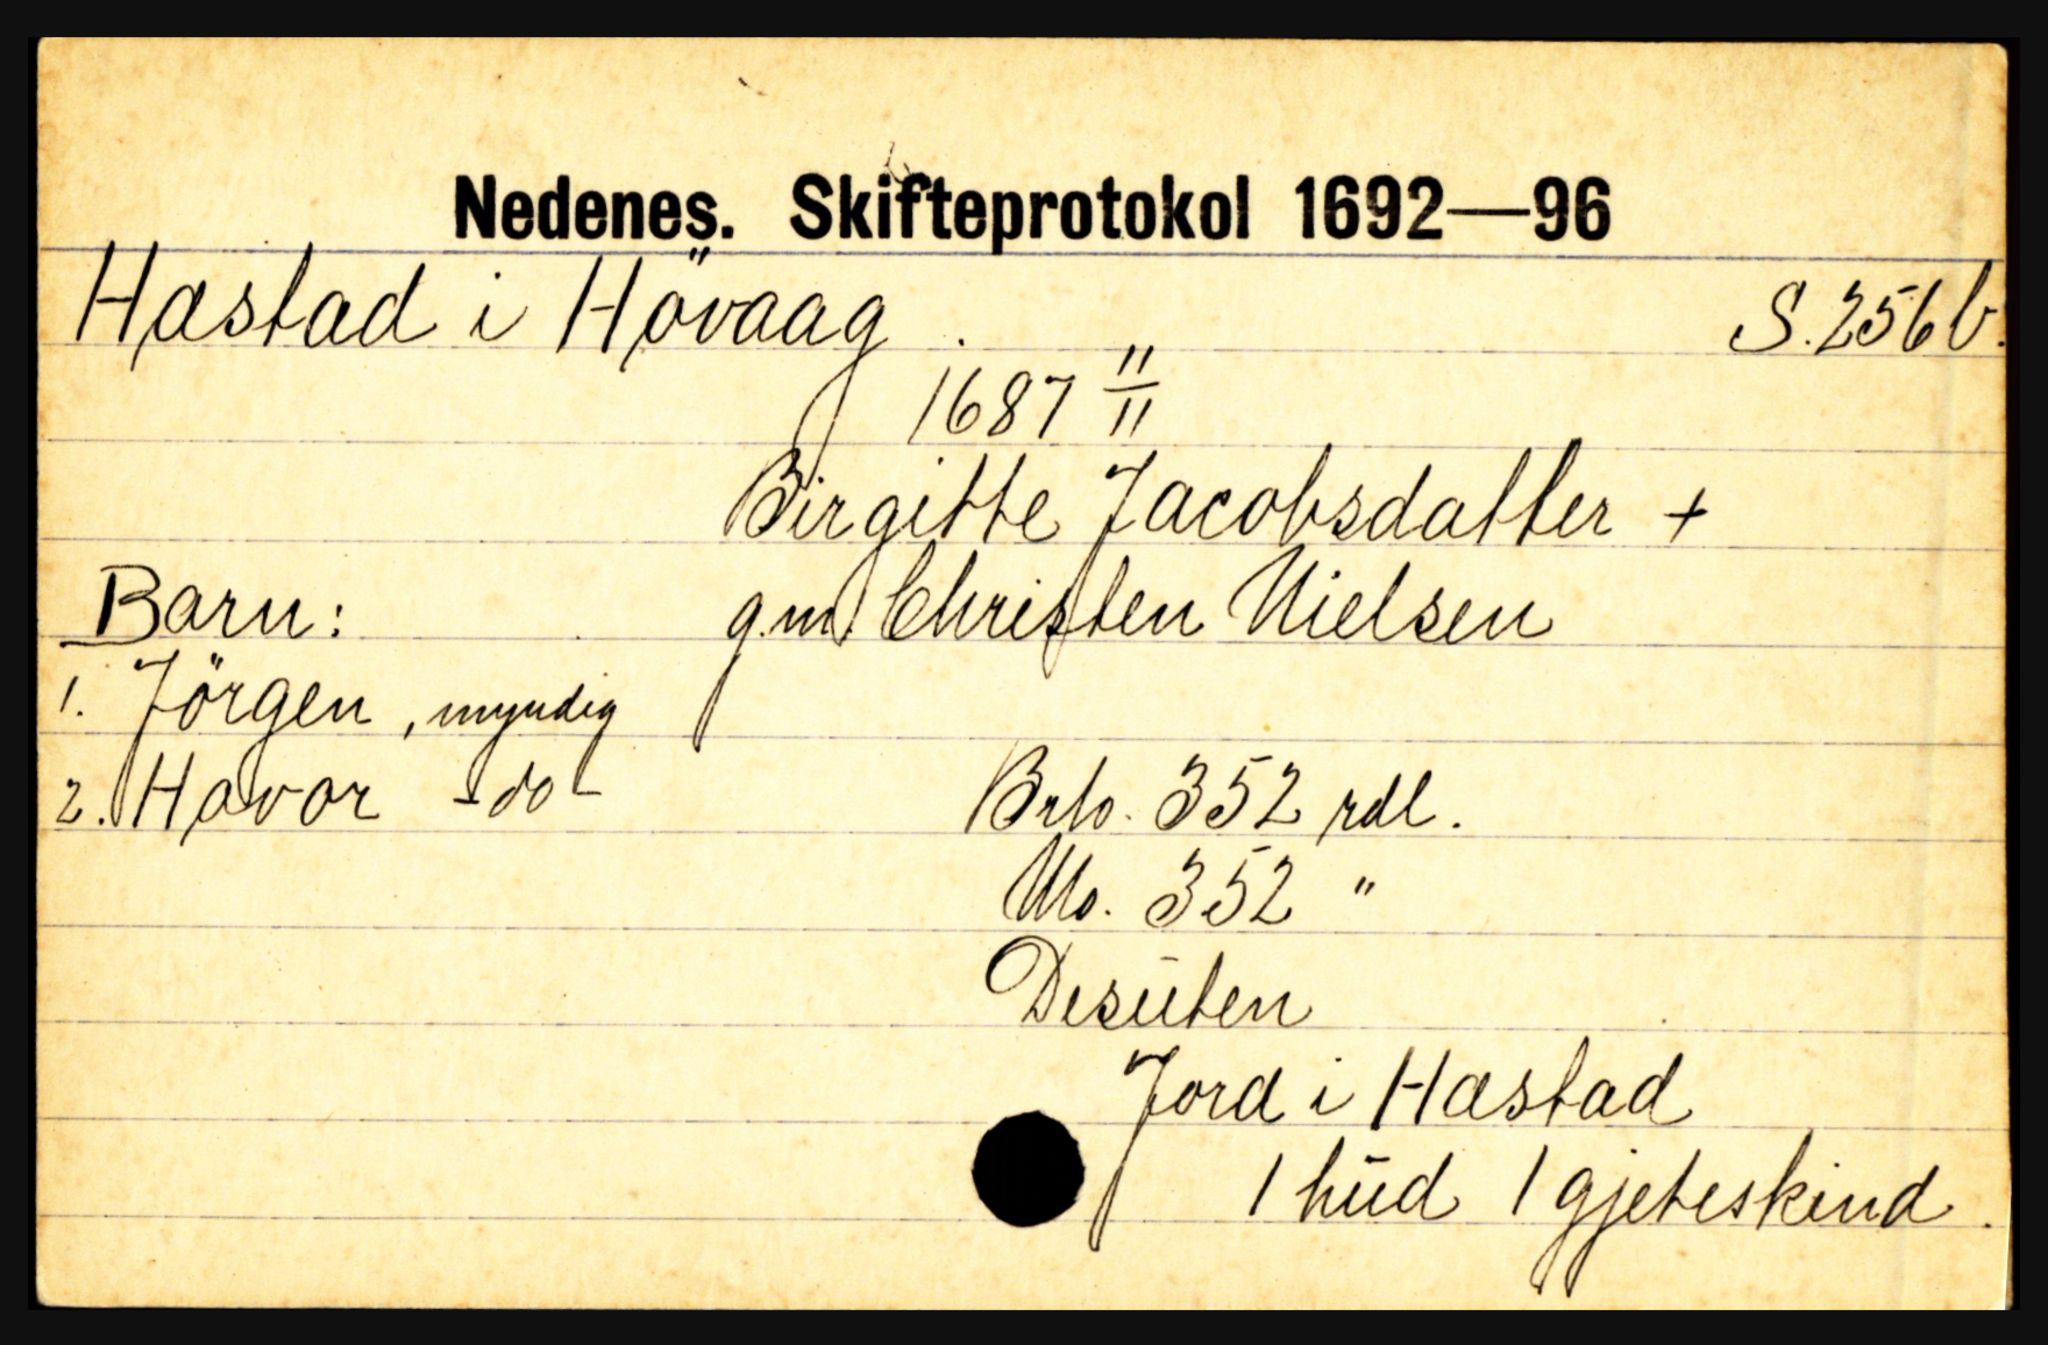 Nedenes. Skifteprotokol 1692—96
Hæstad i Hövaag. S. 256b.
1687 11/11
Birgitte Jacobsdatter +
g.m. Christen Nielsen
Barn:
1. Jörgen, myndig
2. Havor -do-
Brto. 352 rdl.
Nto. 352 "
Desuten
Jord i Hæstad
1 hud 1 gjeteskind.